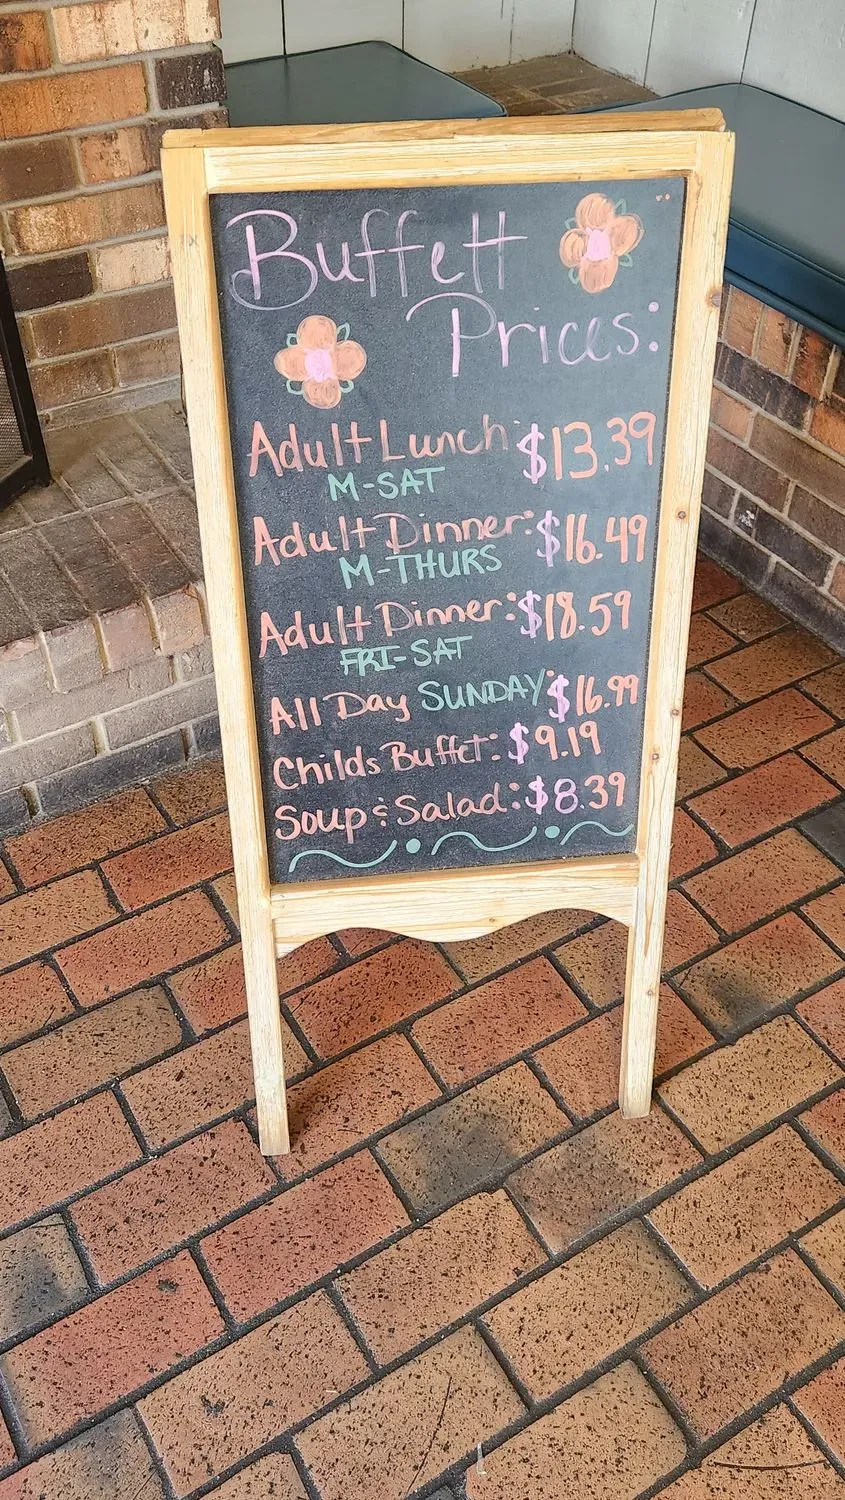 Buffett
Prices:
Adult Lunch: $13.39
M-SAT
Adult Dinner: $16.49
M-THURS
Adult Dinner: $18.59
FRI-SAT
All Day SUNDAY: $16.99
Childs Buffet: $9.19
Soup & Salad: $8.39